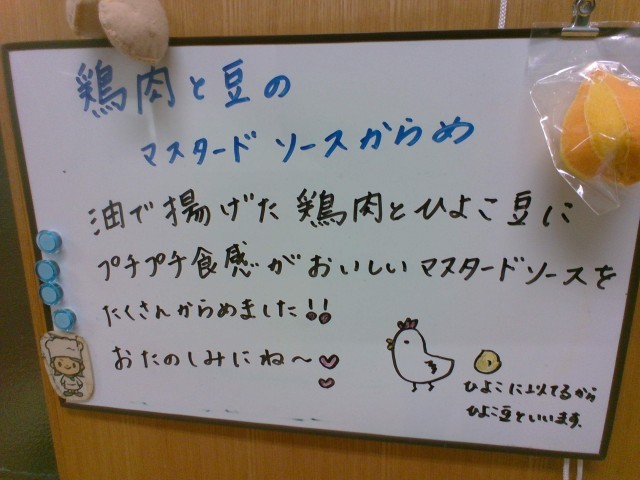 鶏肉と豆の
マスタードソースからめ
油で揚げた鶏肉とひよこ豆に
プチプチ食感がおいしいマスタードソースを
たくさんからめました!!
おたのしみにね〜
ひよこに似てるから
ひよこ豆といいます。